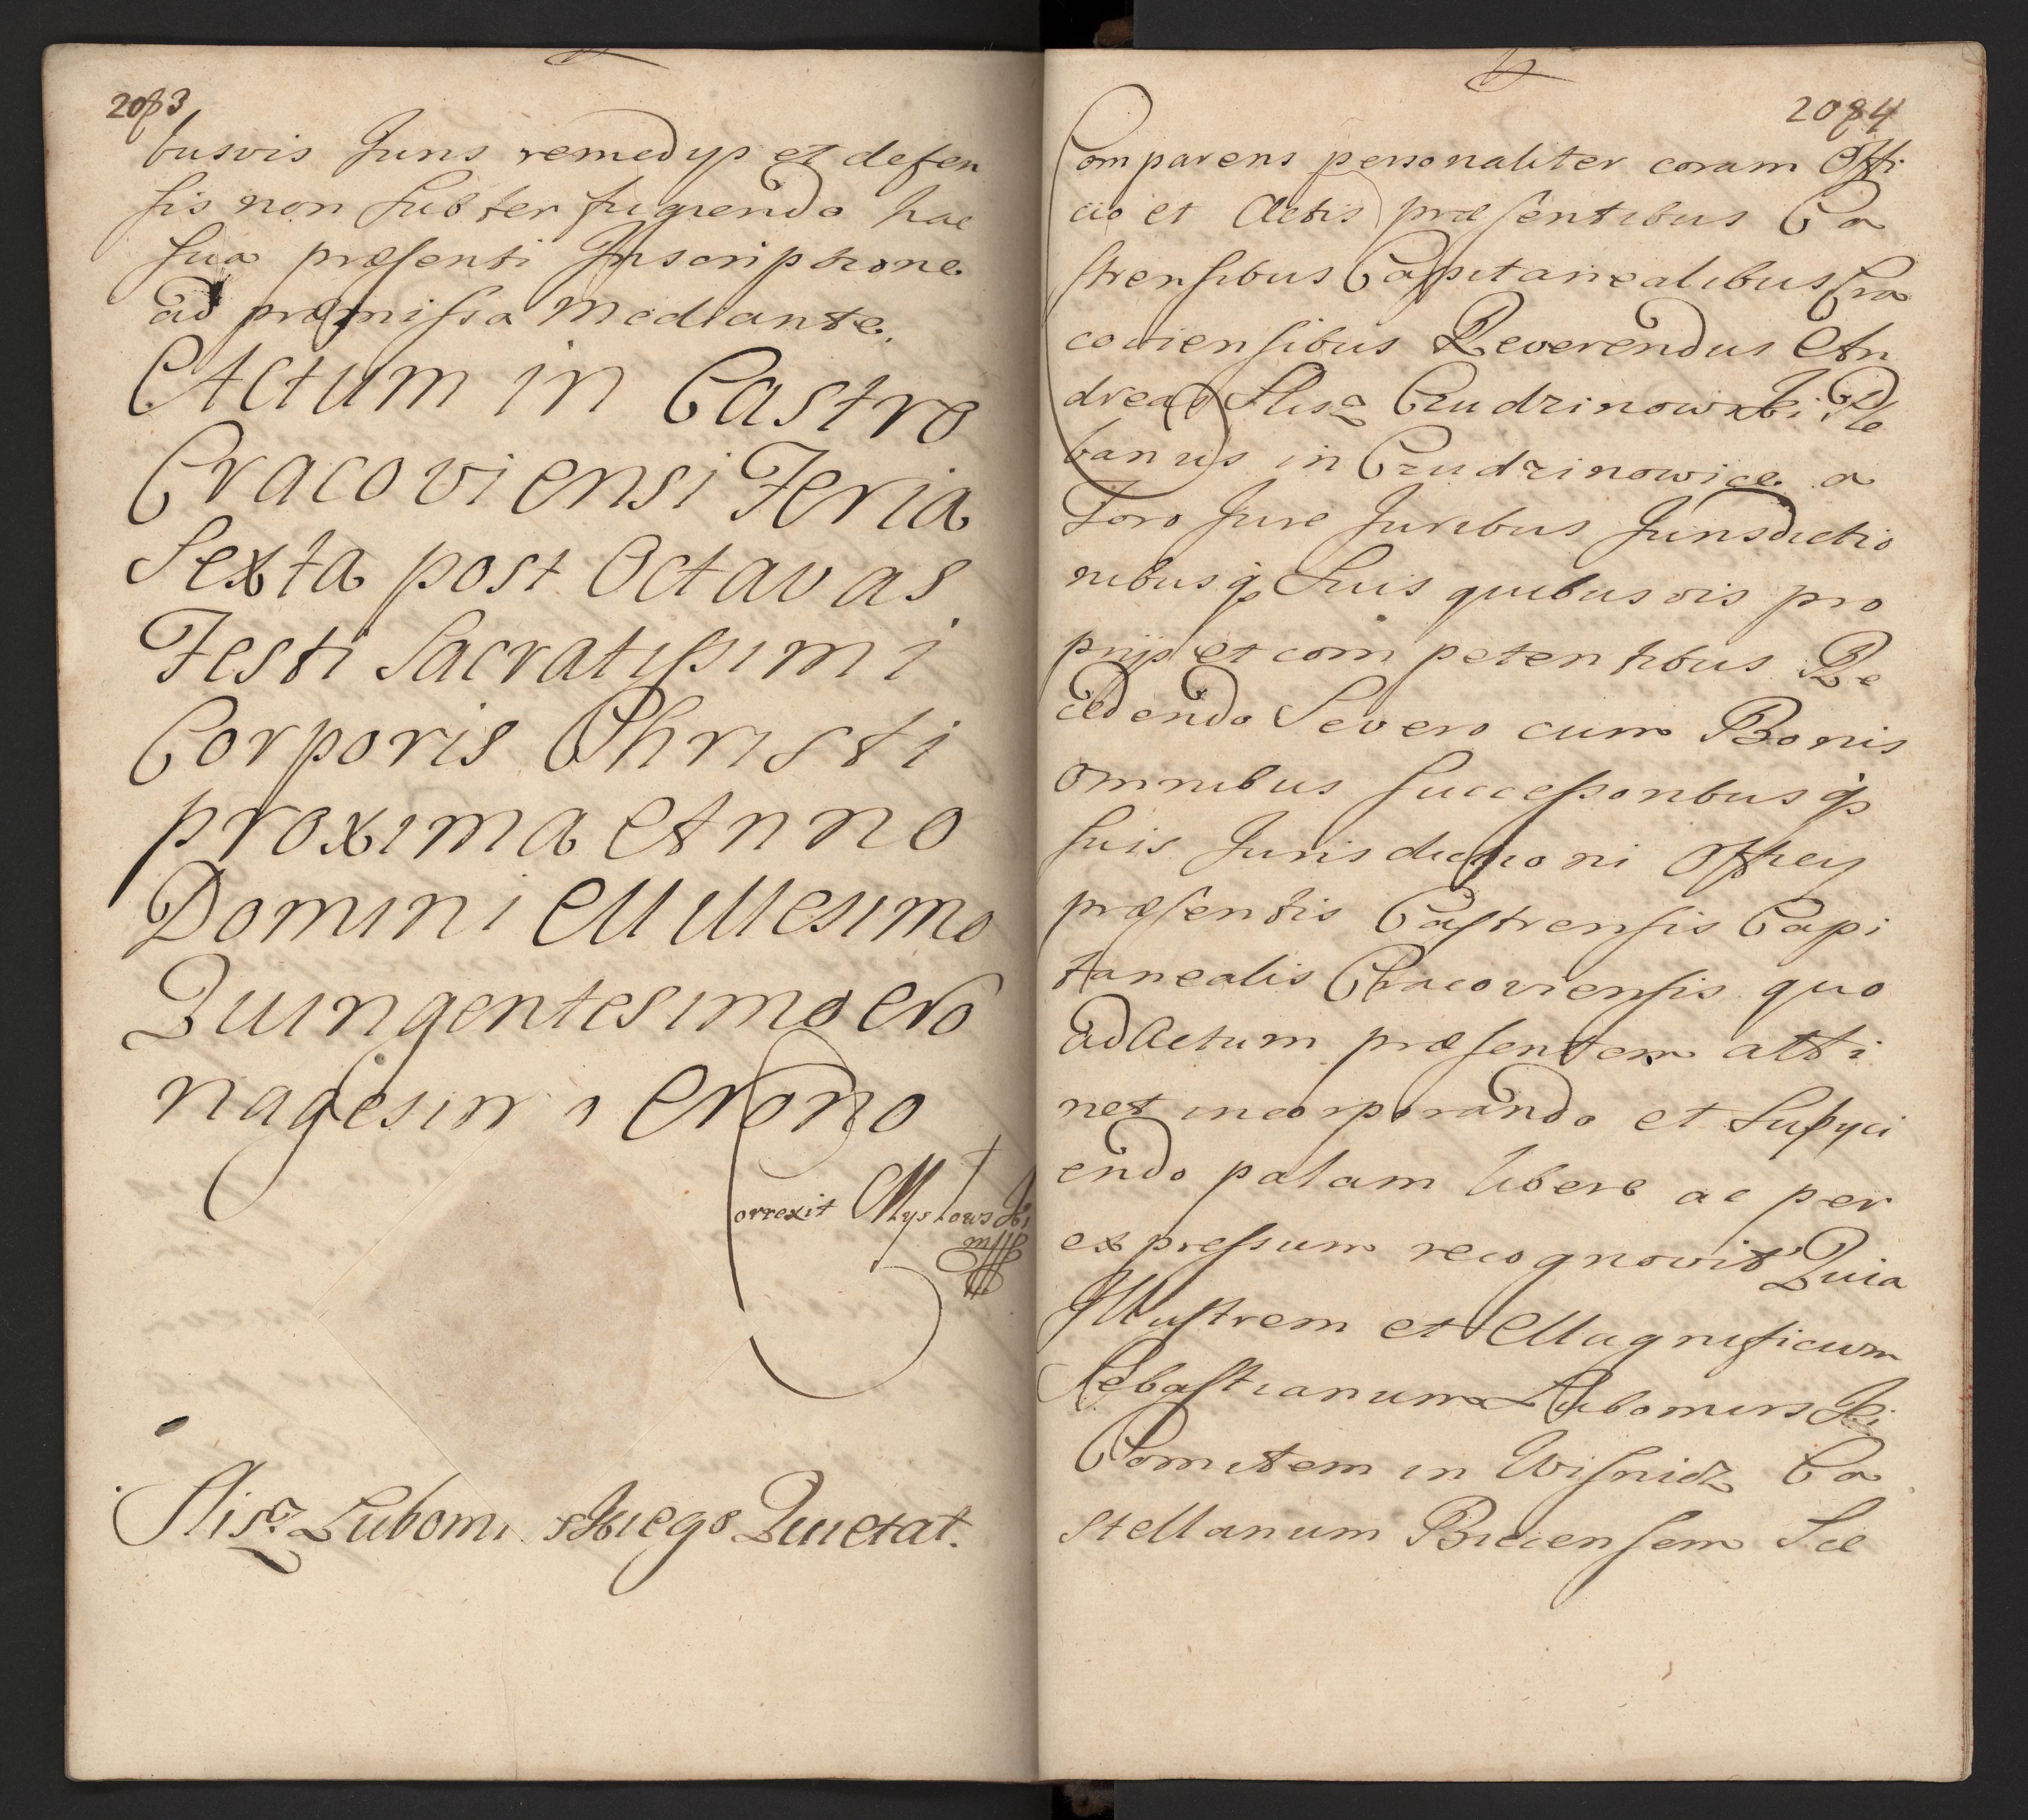 2083
busvis Juris remedys et defen
sis non subterfugiendo hac
sua præsenti Inscriptione
ad præmissa mediante.
Actum in Castro
Cracoviensi Feria
Sexta post Octavas
Festi Sacratissimi
Corporis Christi
proxima Anno
Domini Millesimo
Quingentesimo No
nagesimo Nono
Correxit Mysłowski
mp
Slisz Lubomirskiego Quietat.
2084
Comparens personaliter coram Offi
cio et Actis præsentibus Ca
strensibus Capitanealibus Cra
coviensibus Reverendus An
dreas Slisz Czudzinowski Ple
banus in Czudzinowice a
Foro Jure Juribus Jurisdictio
nibusq̃ suis quibusvis pro
prijs et competentibus Re
cedendo Severo cum Bonis
omnibus successoribusq̃
suis Jurisdictioni Officy
præsentis Castrensis Capi
tanealis Cracoviensis quo
ad Actum præsentem atti
net incorporando et Subyci
endo palam libere ac per
expressum recognovit Quia
Illustrem et Magnificum
Sebastianum Lubomirski
Comitem in Wisnicz Ca
stellanum Biecensem Sce